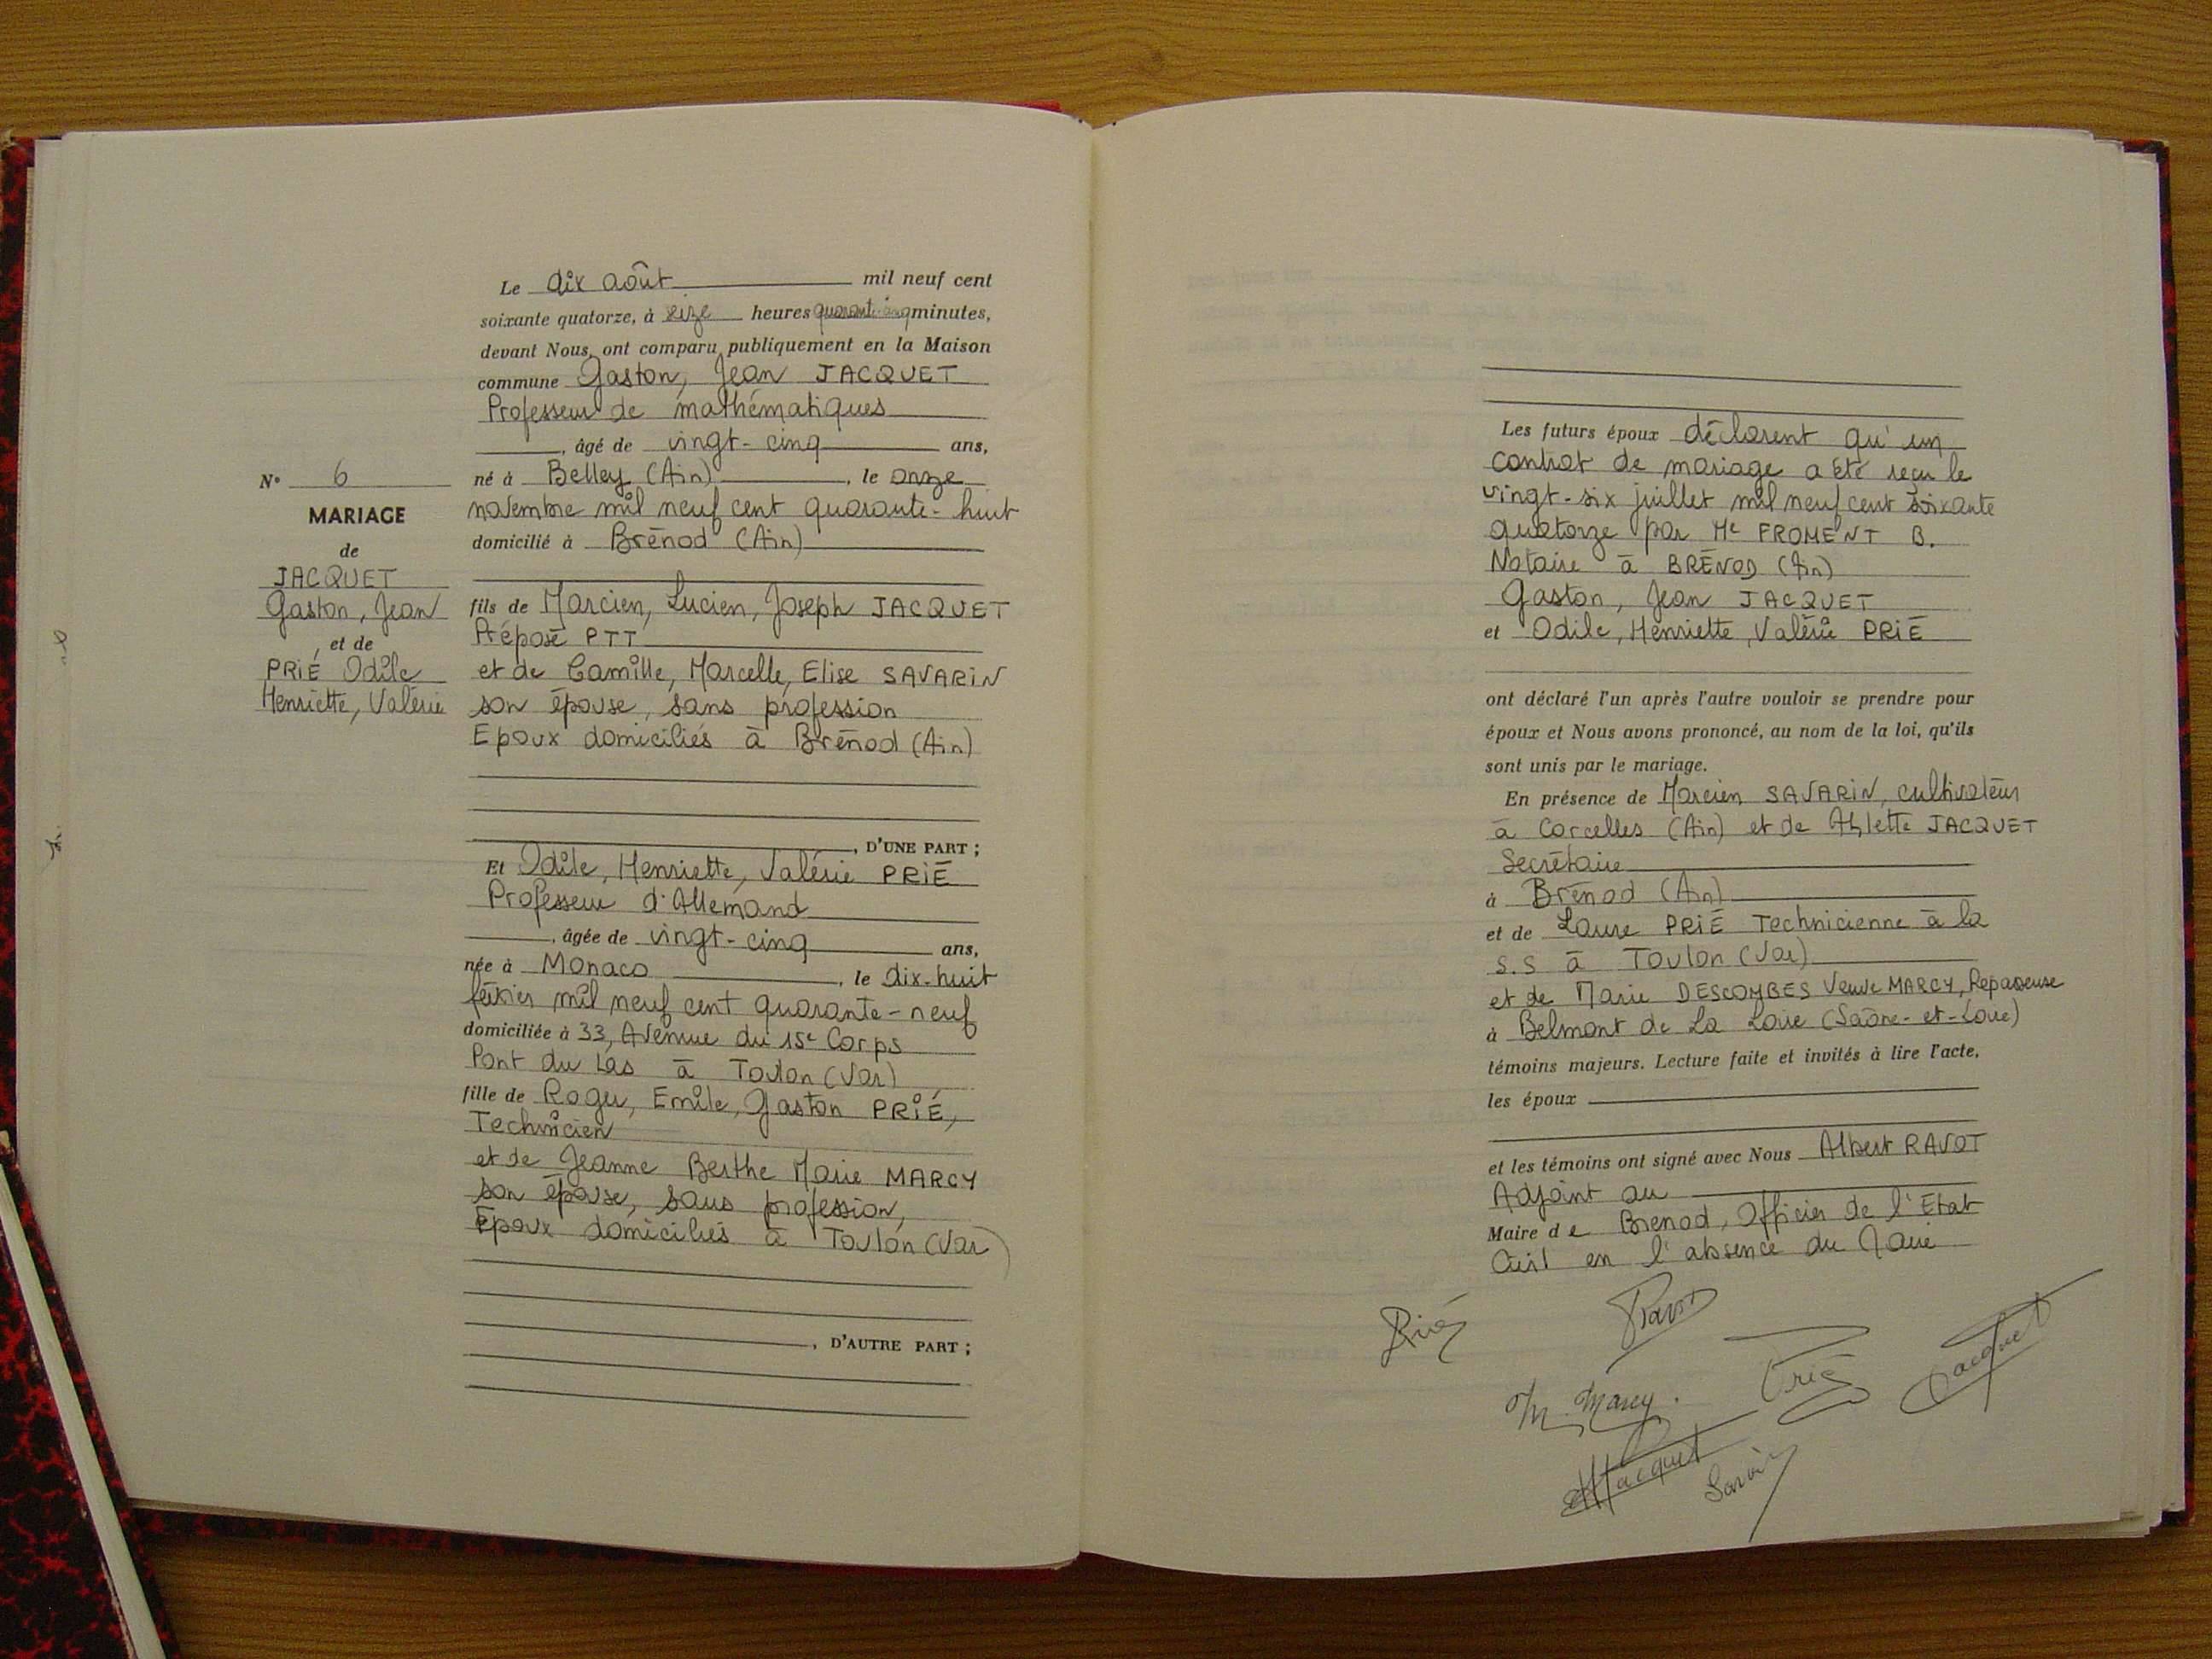 N° 6
MARIAGE
de
JACQUET
Gaston, Jean
et de
PRIÉ Odile
Henriette, Valérie
Le dix août mil neuf cent
soixante quatorze, à seize heures quarante-cinq minutes,
devant Nous, ont comparu publiquement en la Maison
commune Gaston, Jean JACQUET
Professeur de mathématiques
, âgé de vingt-cinq ans,
né à Belley (Ain), le onze
novembre mil neuf cent quarante-huit
domicilié à Brénod (Ain)
fils de Marcien, Lucien, Joseph JACQUET
Préposé PTT
et de Camille, Marcelle, Elise SAVARIN
son épouse, sans profession
Epoux domiciliés à Brénod (Ain)
, D'UNE PART ;
Et Odile, Henriette, Valérie PRIÉ
Professeur d'Allemand
, âgée de vingt-cinq ans,
née à Monaco, le dix-huit
février mil neuf cent quarante-neuf
domiciliée à 33, Avenue du 15e Corps
Pont du Las à Toulon (Var)
fille de Roger, Emile, Gaston PRIÉ,
Technicien
et de Jeanne Berthe Marie MARCY
son épouse, sans profession,
Epoux domiciliés à Toulon (Var)
, D'AUTRE PART ;
Les futurs époux déclarent qu'un
contrat de mariage a été reçu le
vingt-six juillet mil neuf cent soixante
quatorze par Me FROMENT B.
Notaire à BRÉNOD (Ain)
Gaston, Jean JACQUET
et Odile, Henriette, Valérie PRIÉ
ont déclaré l'un après l'autre vouloir se prendre pour
époux et Nous avons prononcé, au nom de la loi, qu'ils
sont unis par le mariage.
En présence de Marcien SAVARIN, cultivateur
à Corcelles (Ain) et de JACQUET
Secrétaire
à Brénod (Ain)
et de Laure PRIÉ Technicienne à la
S.S à Toulon (Var)
et de Marie DESCOMBES Veuve MARCY, Repasseuse
à Belmont de La Loire (Saône-et-Loire)
témoins majeurs. Lecture faite et invités à lire l'acte,
les époux
et les témoins ont signé avec Nous Albert RAVOT
Adjoint au
Maire de Brenod, Officier de l'Etat
Civil en l'absence du Maire
Prié
Ravot
M. Marcy.
Prié
Jacquet
Jacquet